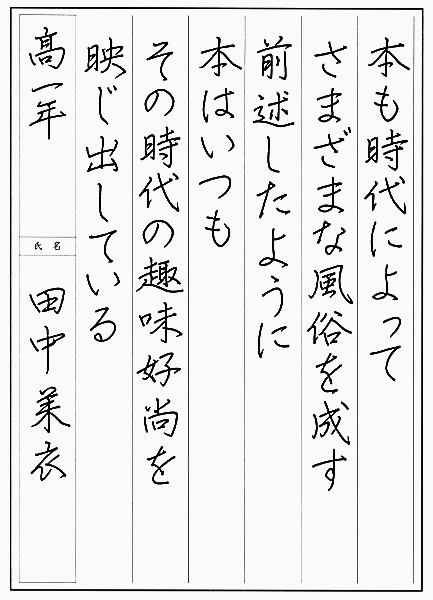 本も時代によって
さまざまな風俗を成す
前述したように
本はいつも
その時代の趣味好尚を
映じ出している
高一年
氏名
田中美衣